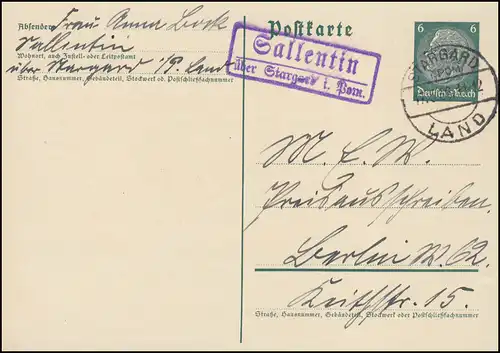 Absender: Frau Anna Bock
Sallentin
Wohnort, auch Zustell- oder Leitpostamt
über Stargard i/P. Land
Straße, Hausnummer, Gebäudeteil, Stockwerk od. Postschließfachnummer
Postkarte
Sallentin
über Stargard i. Pom.
6 6
Deutsches Reich
STARGARD
(POM)
LAND
M. E. W.
Preisausschreiben.
Berlin W. 62.
Keithstr. 15.
Straße, Hausnummer, Gebäudeteil, Stockwerk oder Postschließfachnummer